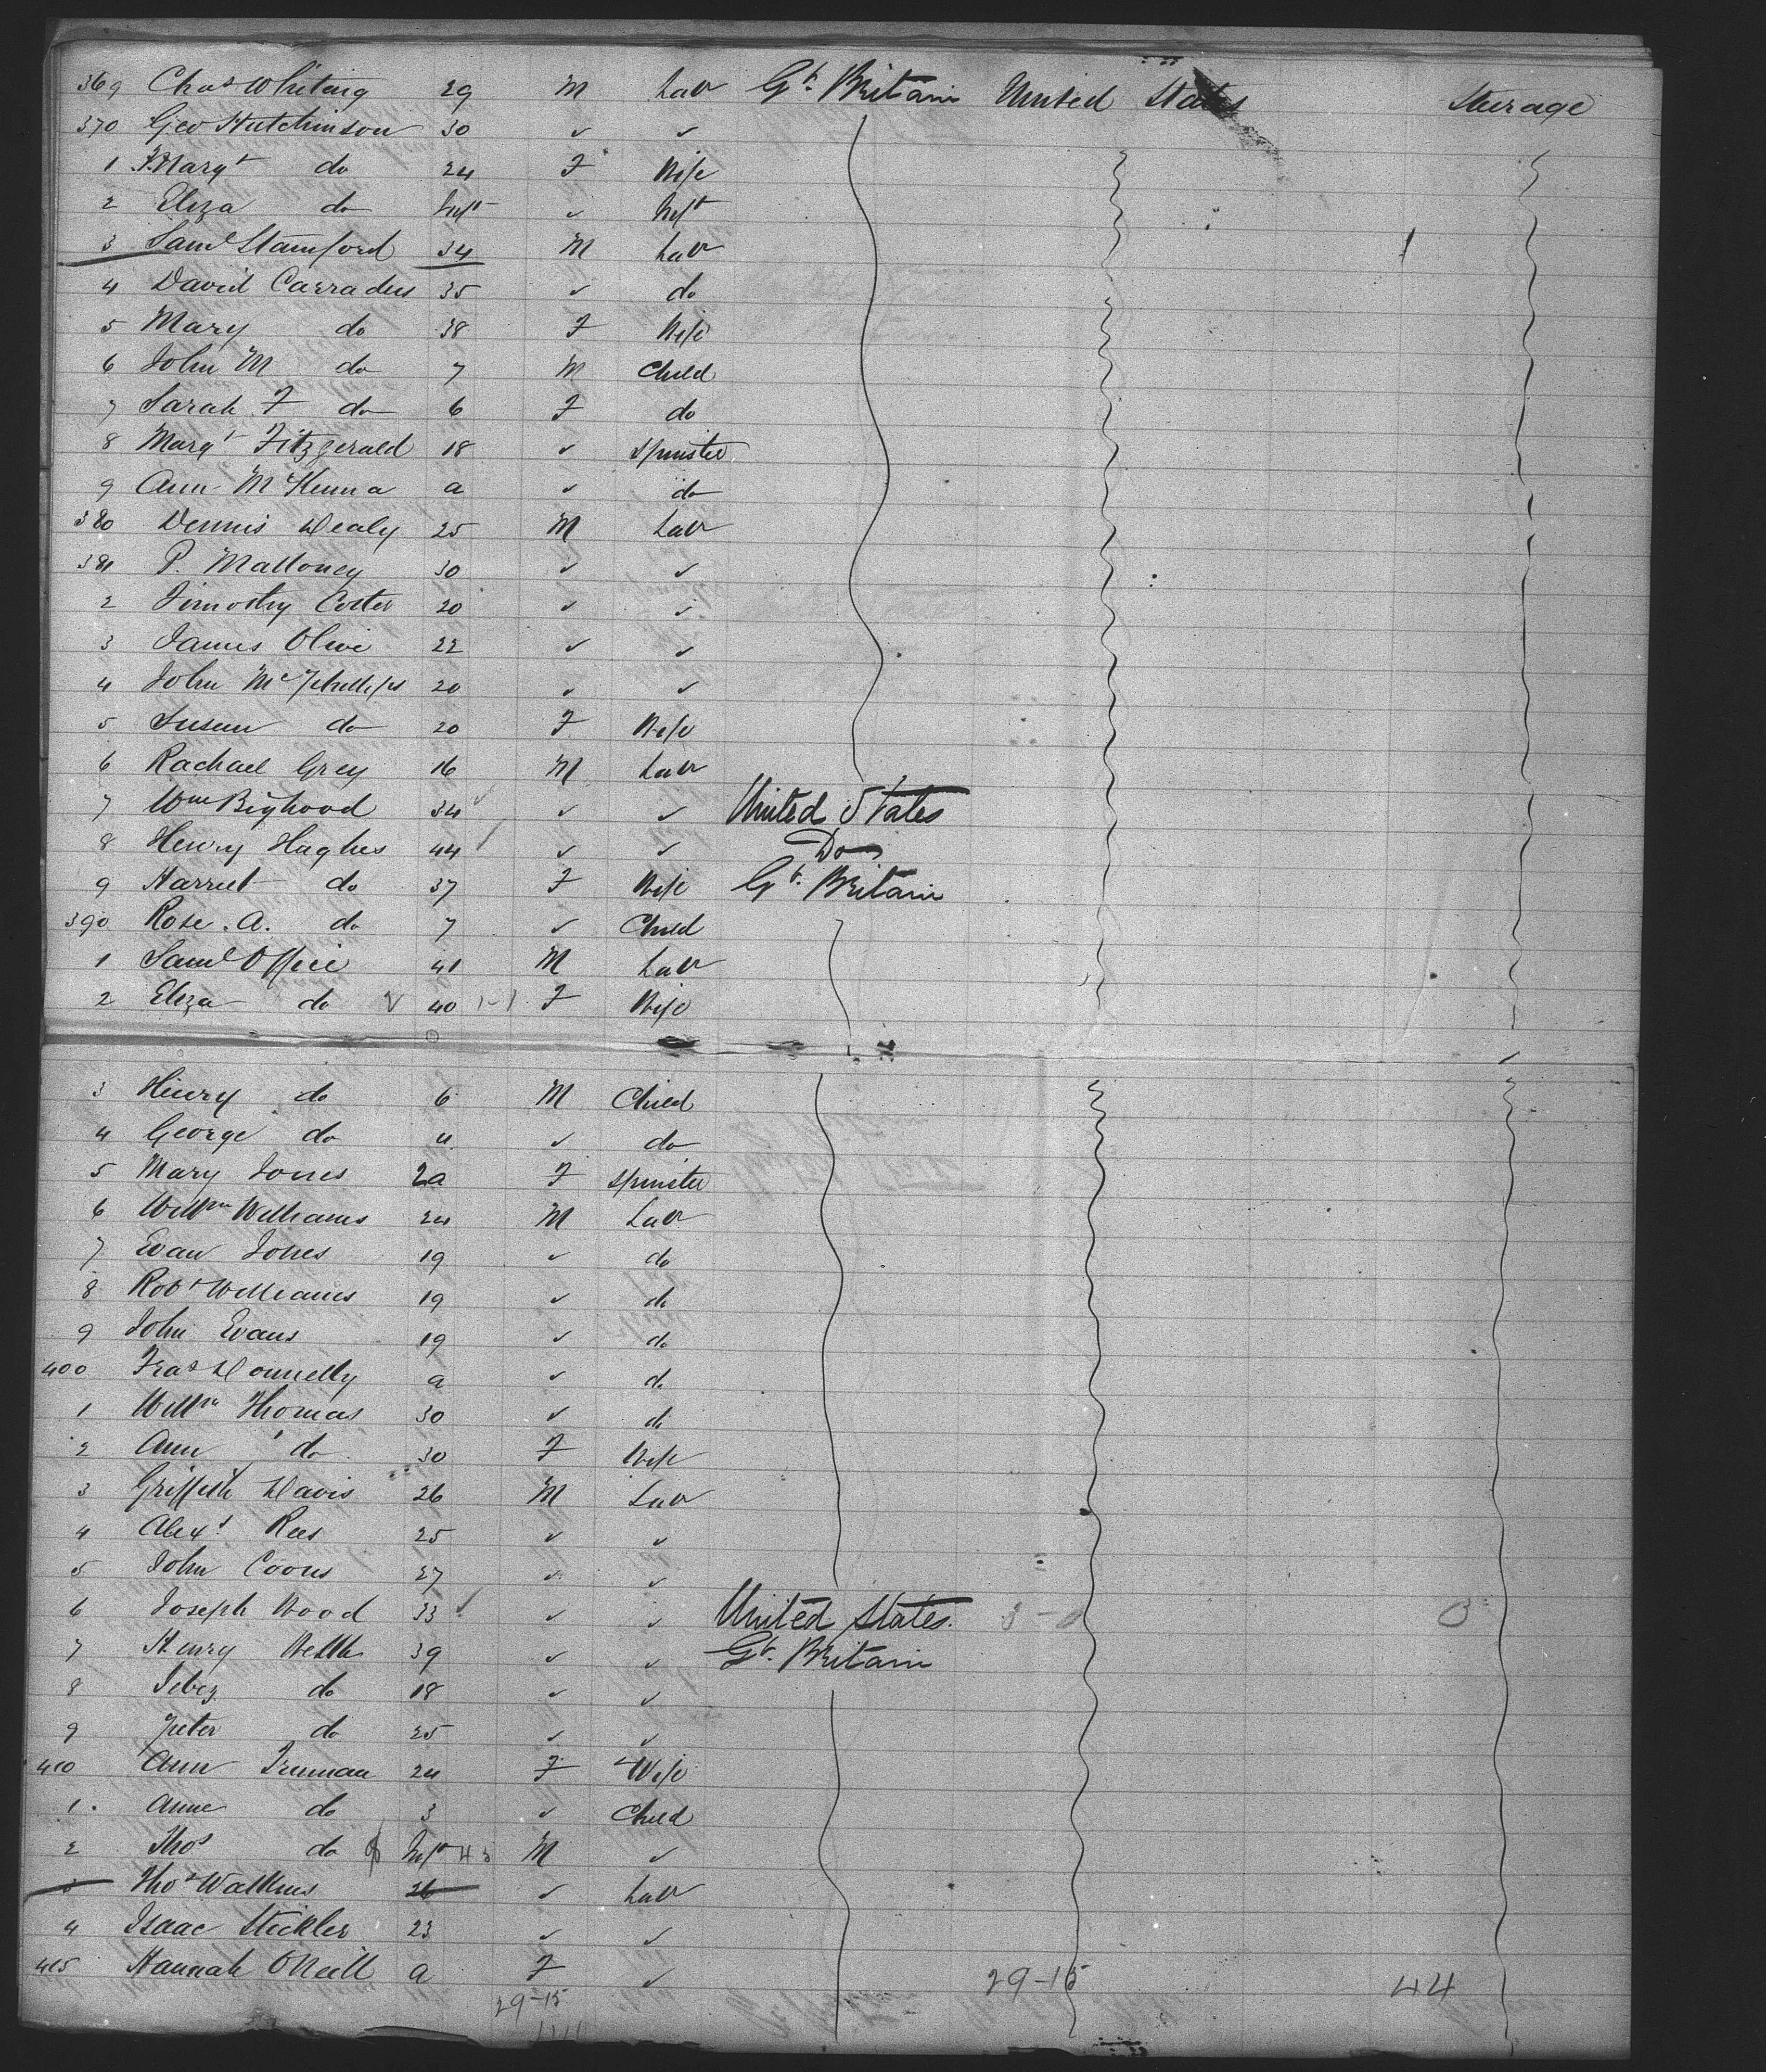 369 Chas Whiting 29 M Lab Gt. Britain United States Steerage
370 Geo Hutchinson 30 ✓ ✓
1 Margt do 24 F Wife
2 Eliza do Inft ✓ Inft
3 Saml Stamford 34 M Lab
4 David Carradus 35 ✓ do
5 Mary do 38 F Wife
6 John M do 7 M Child
7 Sarah F do 6 F do
8 Margt Fitzgerald 18 ✓ Spinster
9 Ann McKenna a ✓ do
380 Dennis Dealy 25 M Lab
381 P. Malloney 30 ✓ ✓
2 Timothy Coster 20 ✓ ✓
3 James Olive 22 ✓ ✓
4 John McPhillips 20 ✓ ✓
5 Susan do 20 F Wife
6 Rachael Grey 16 M Lab
7 Wm Bighood 34 ✓ ✓ United States
8 Henry Hughes 44 ✓ ✓ Do
9 Harriet do 37 F Wife Gt. Britain
390 Rose. A. do 7 ✓ Child
1 Saml Office 41 M Lab
2 Eliza do 40 F Wife
3 Henry do 6 M Child
4 George do 4 ✓ do
5 Mary Jones 2a F Spinster
6 Willm Williams 24 M Lab
7 Evan Jones 19 ✓ do
8 Robt Williams 19 ✓ do
9 John Evans 19 ✓ do
400 Fras Donnelly a ✓ do
1 Willm Thomas 30 ✓ do
2 Ann do 30 F Wife
3 Griffith Davis 26 M Lab
4 Alexr Rees 25 ✓ ✓
5 John Coons 27 ✓ ✓
6 Joseph Wood 33 ✓ ✓ United States.
7 Henry 39 ✓ ✓ Gt. Britain
8 Jebez do 18 ✓ ✓
9 Peter do 25 ✓ ✓
410 Ann Truman 24 F Wife
1. Anne do 3 ✓ Child
2 Thos do Inft M ✓
3 Thos Watkins 26 ✓ Lab
4 Isaac Stickler 23 ✓ ✓
415 Hannah ONeill a F ✓ 29-15 44
29-15